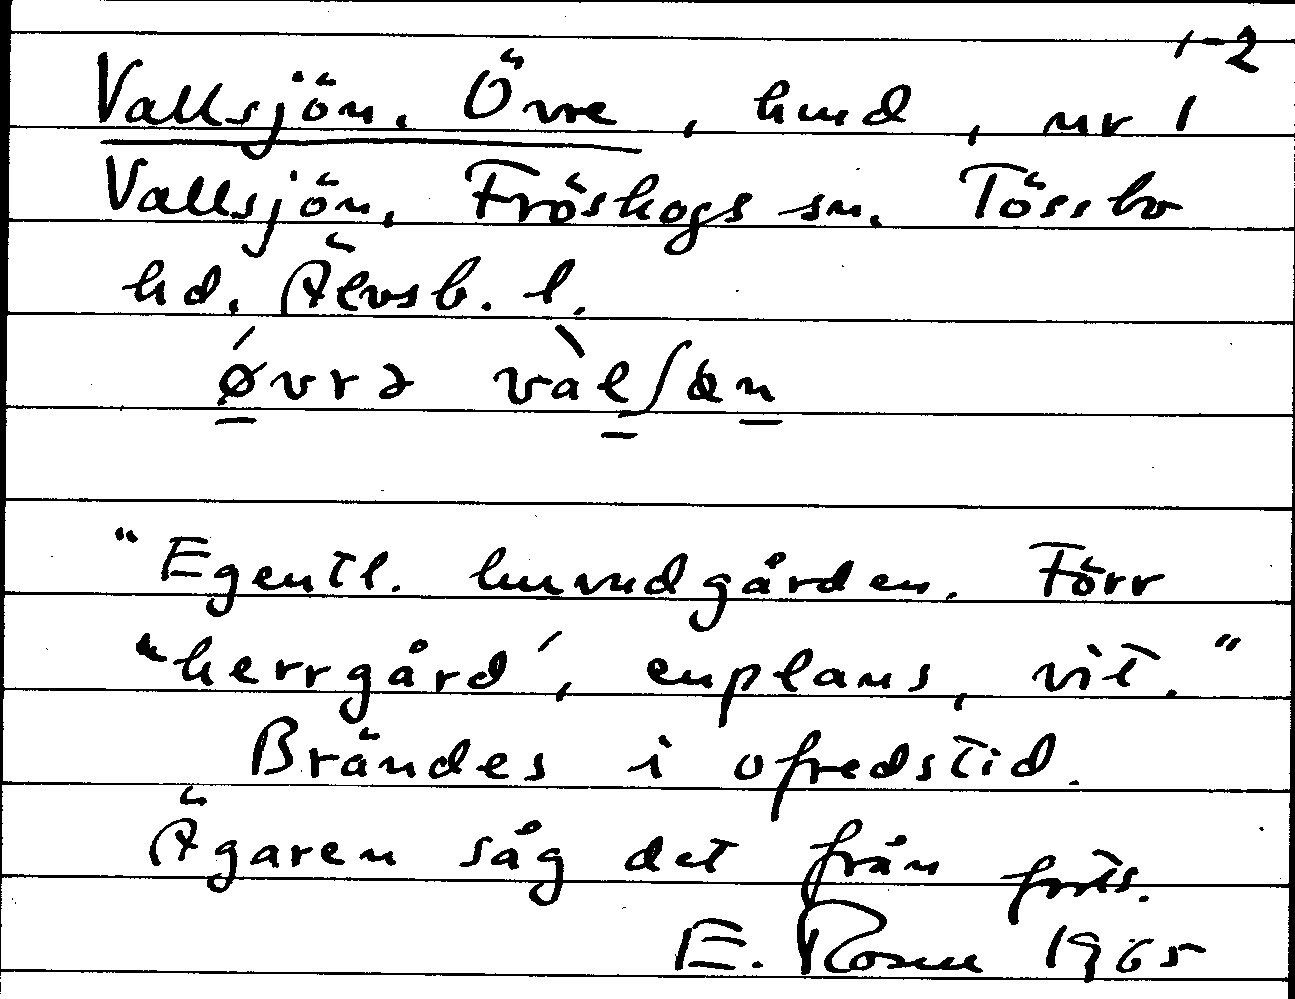 1-2
Vallsjön. Övre, hmd, nr 1
Vallsjön, Fröskogs sn. Tössbo
hd. Älvsb. l.
øvrə vàlʃän
"Egentl. huvudgården. Förr
"herrgård", enplans, vit."
Brändes i ofredstid.
Ägaren såg det från
forts.
E. Rosell 1965